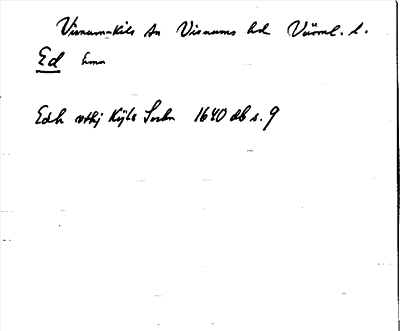 Visnums-Kils sn Visnums hd Värml. l.
Ed hmn
Edh vthj Kijls Sockn 1640 db s. 9